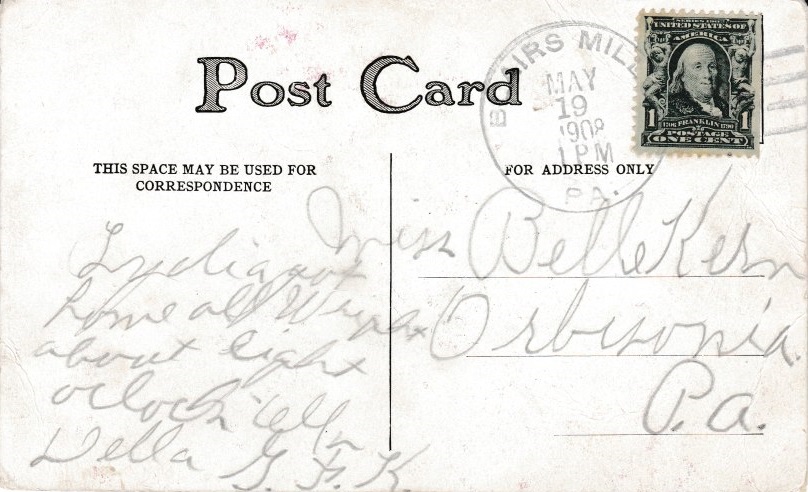 Post Card
BLAIRS MILLS
MAY
19
1908
1 PM
PA.
SERIES 1902
UNITED STATES OF
AMERICA
1 1706 FRANKLIN 1790 1
POSTAGE
ONE CENT
THIS SPACE MAY BE USED FOR
CORRESPONDENCE
FOR ADDRESS ONLY
Lydia got
home all Wright
about eight
oclock tell
Della G. F. K.
Miss Belle Kern
Orbisonia
Pa.